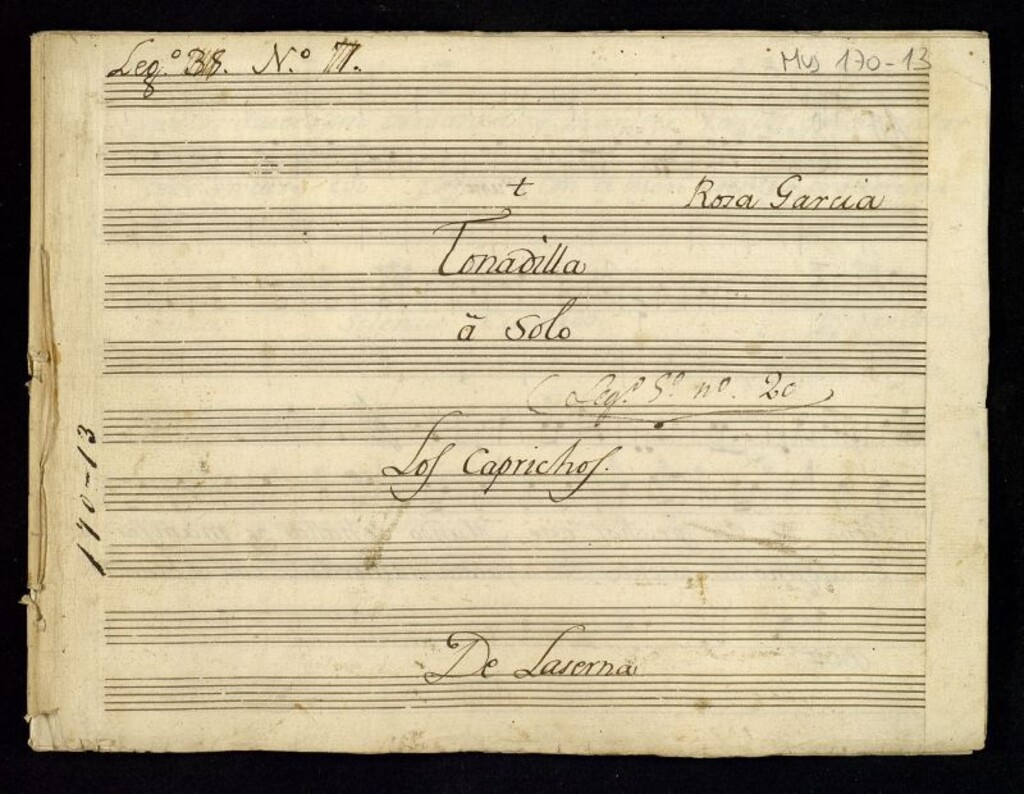 Leg.º 38. N.º 11.
Mus 170-13
t
Rosa Garcia
Tonadilla
â Solo
(Leg.º 5º nº. 20)
Los Caprichos.
170-13
De Laserna